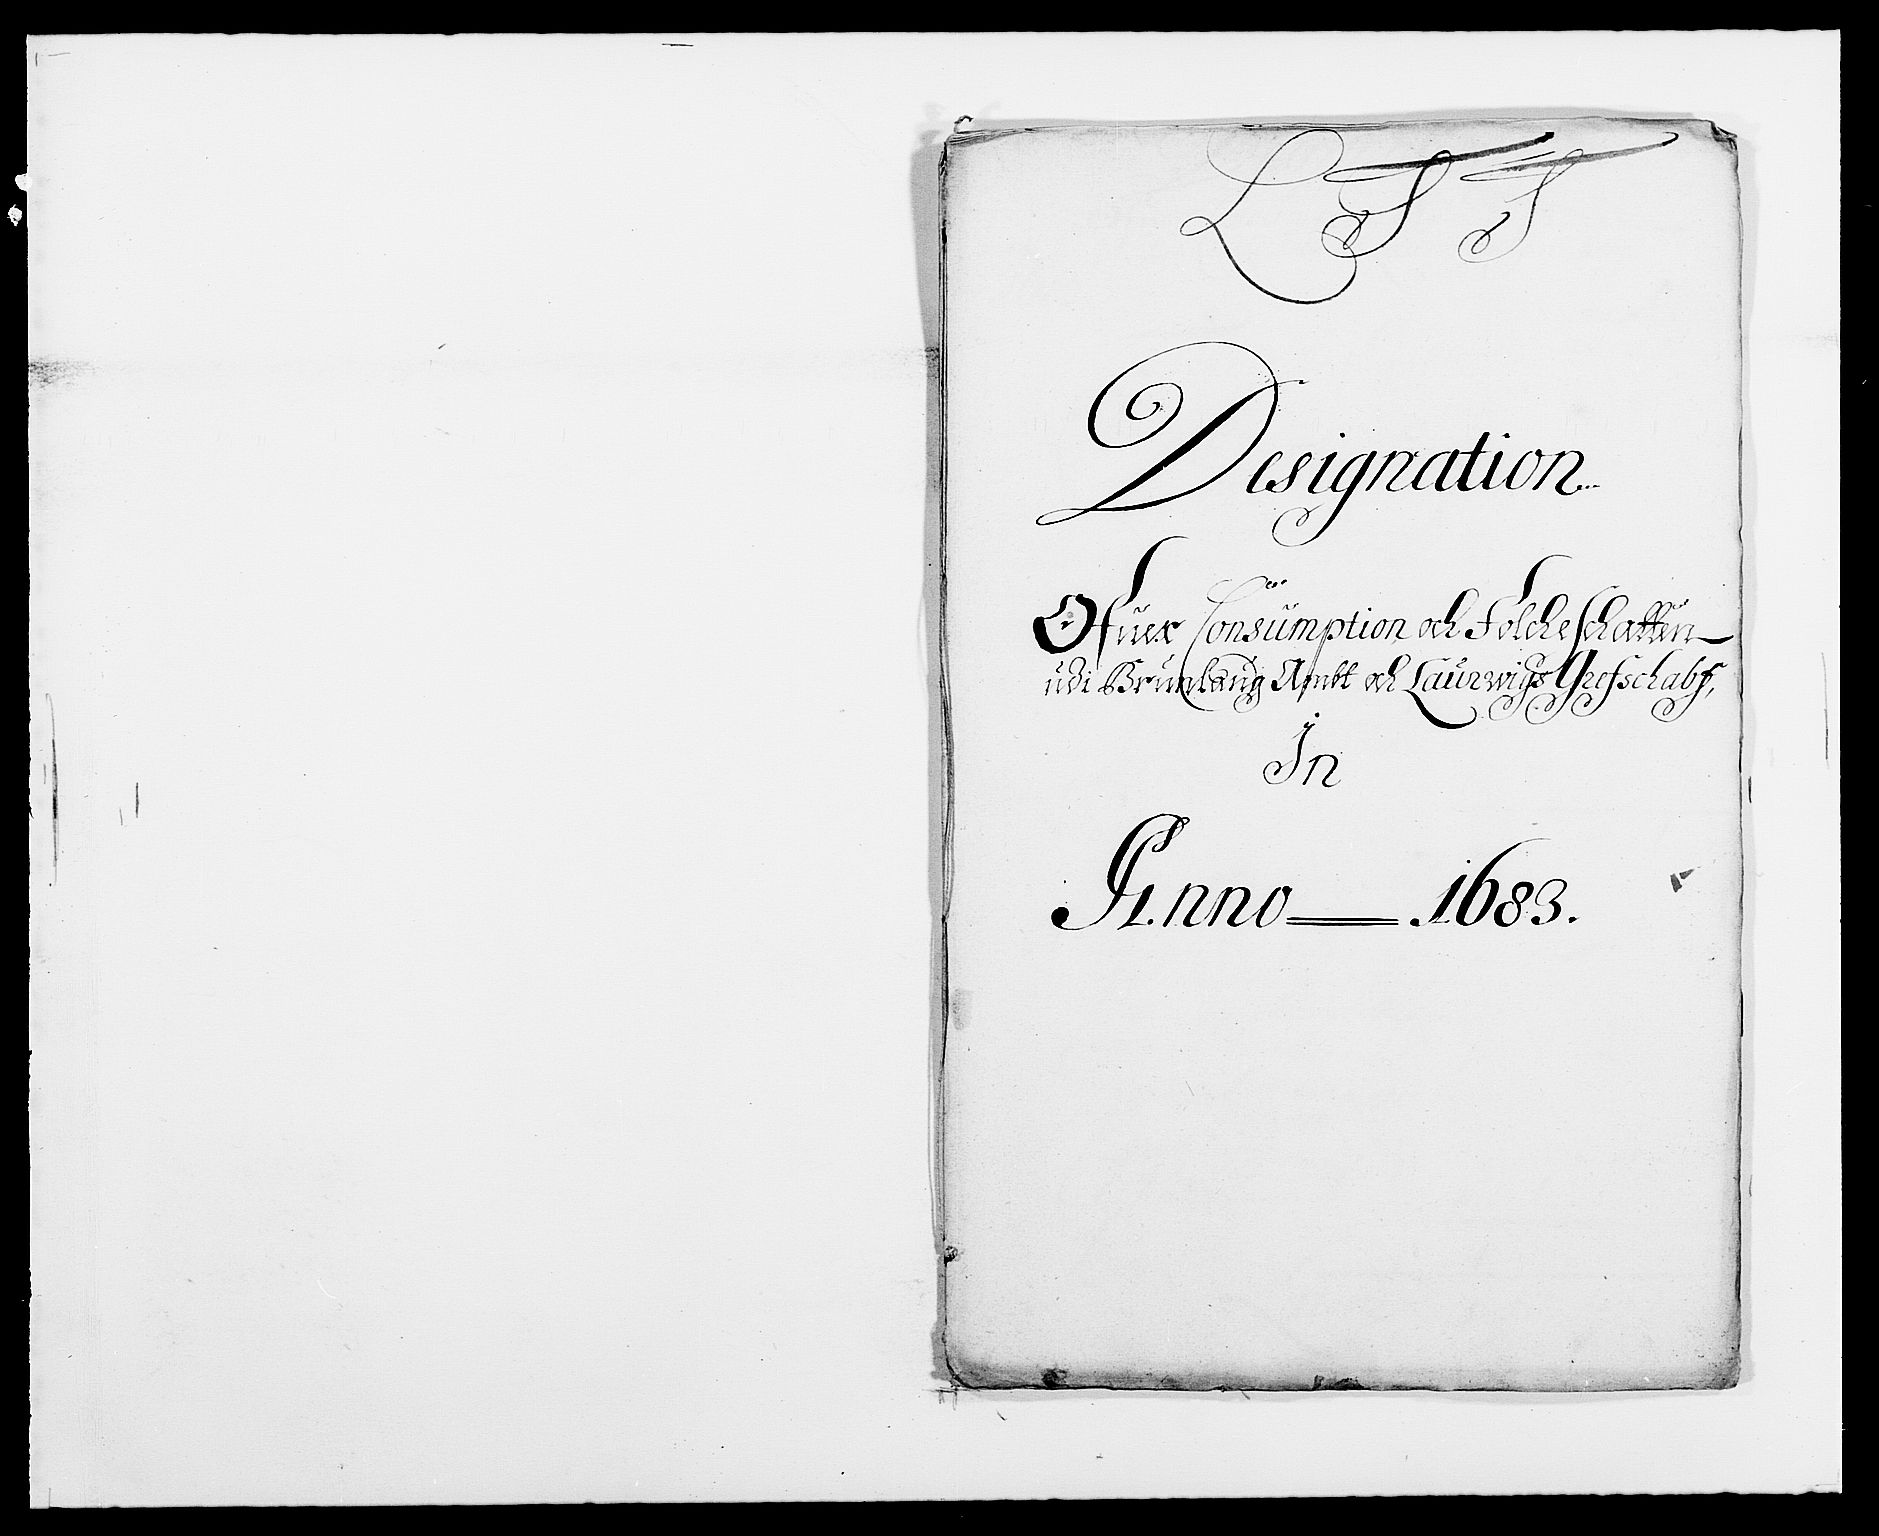 Designation
Ofuer Consumption och Folcke Schatten
udi Brunlaug Ambt och Laurwigs Grefschabf,
In
Anno 1683.